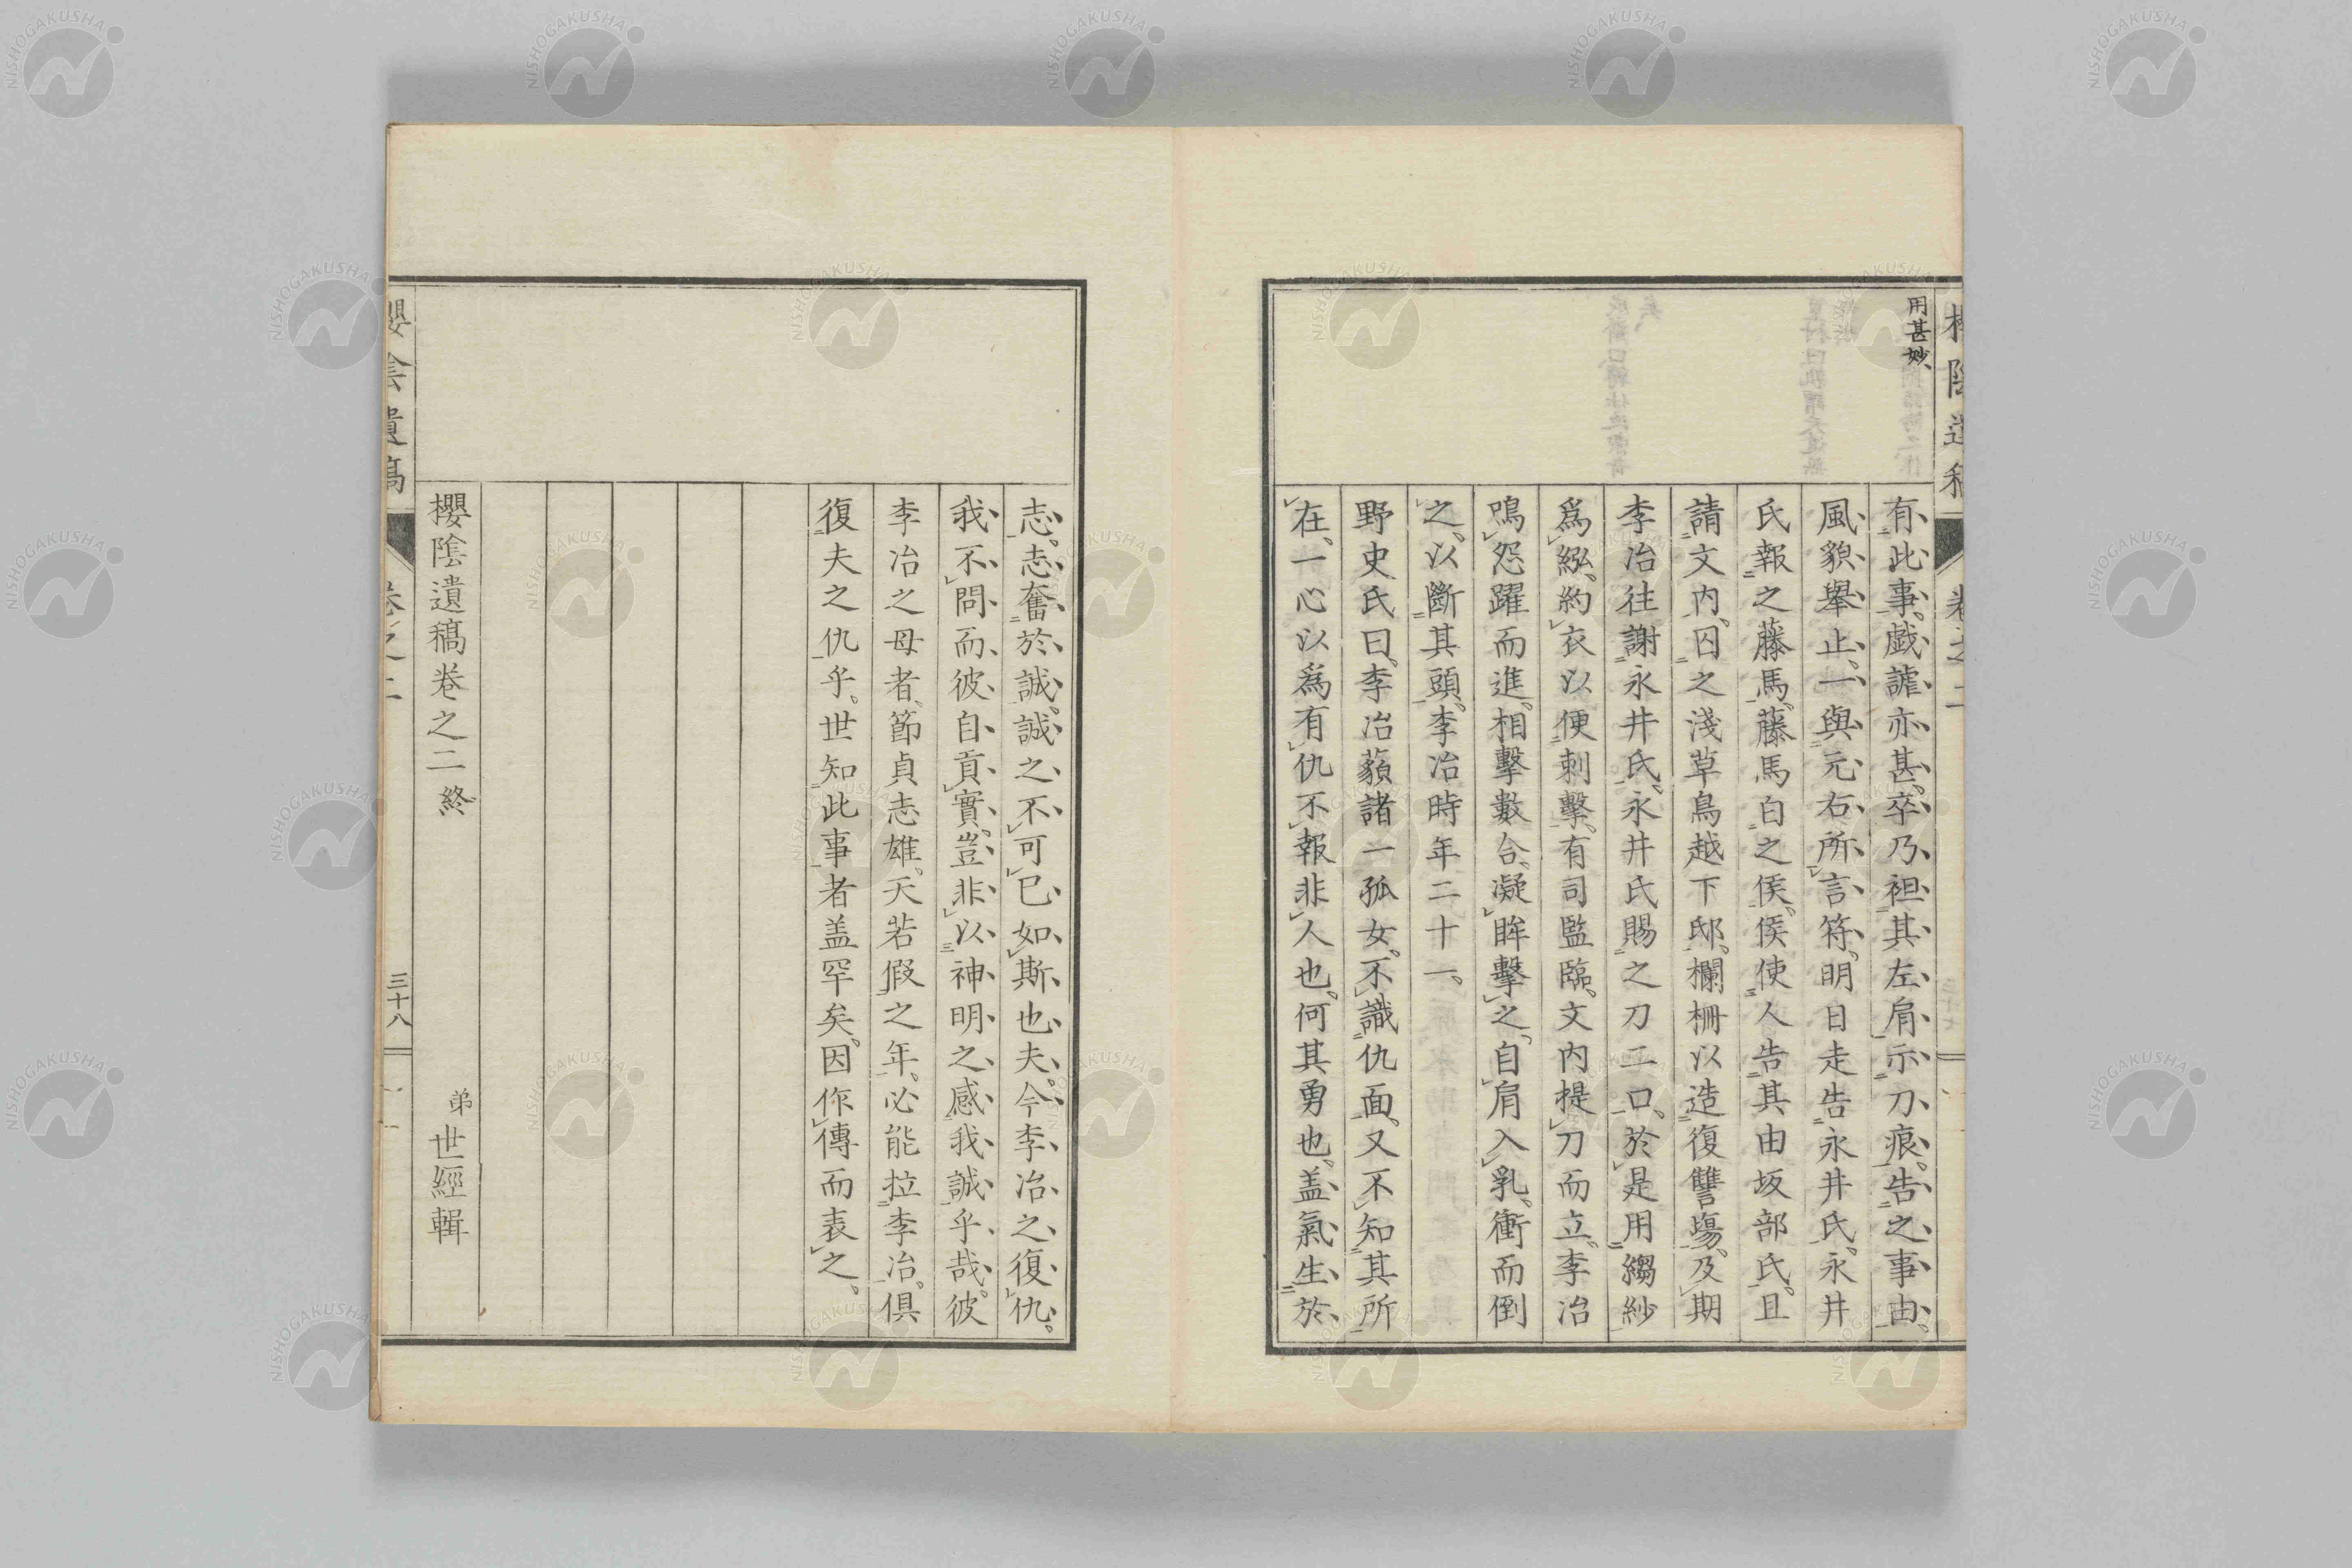 用甚妙、
有此事。戯謔亦甚、卒乃袒其左肩示刀痕。告之事由。
風貌舉止、一與元右所言符。明日走告永井氏。永井
氏報之藤馬。藤馬白之侯。侯使人告其由坂部氏。且
請文內、囚之淺草鳥越下邸。欄柵以造復讐場。及期
李冶往謝永井氏。永井氏賜之刀二口。於是用縐紗
爲綛、約衣以便刺擊。有司監臨。文內提刀而立。李冶
鳴怨躍而進。相擊數合。凝眸擊之。自肩入乳。衝而倒
之。以斷其頭。李冶時年二十一。
野史氏曰。李冶藐諸一孤女。不識仇面。又不知其所
在。一心以爲有仇不報非人也。何其勇也。盖氣生於
志。志奮於誠。誠之不可已如斯也夫。今李冶之復仇。
我不問而彼自貢實。豈非以神明之感我誠乎哉。彼
李冶之母者、節貞志雄。天若假之年。必能拉李冶。俱
復夫之仇乎。世知此事者盖罕矣。因作傳而表之。
櫻陰遺稿卷之二終
弟世經輯
櫻陰遺稿
卷之二
三十八